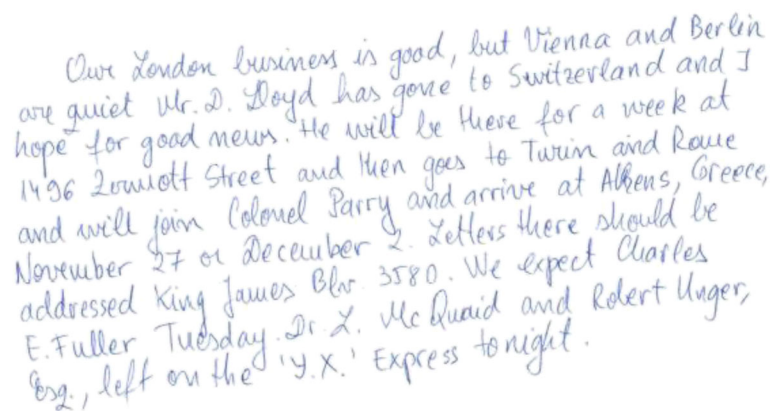 Our London business is good, but Vienna and Berlin
are quiet Mr. D. Lloyd has gone to Switzerland and I
hope for good news. He will be there for a week at
1496 Zermott Street and then goes to Turin and Rome
and will join Colonel Parry and arrive at Athens, Greece,
November 27 or December 2. Letters there should be
addressed King James Blv. 3580. We expect Charles
E. Fuller Tuesday. Dr. L. Mc Quaid and Robert Unger,
Esq., left on the 'Y.X.' Express tonight.